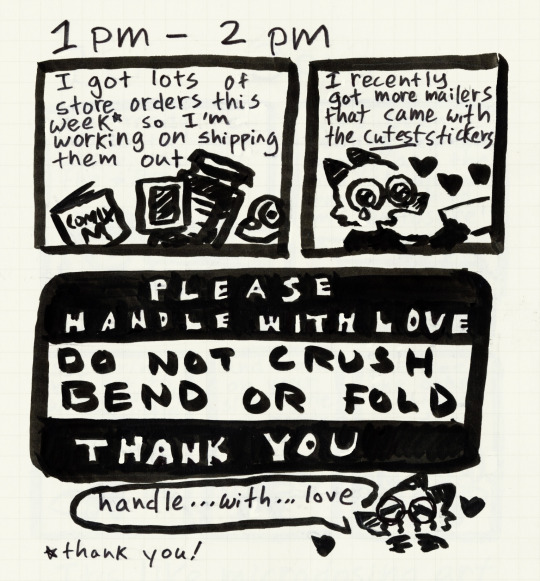 1 pm - 2 pm
I got lots of
store orders this
week* so I'm
working on shipping
them out
I recently
got more mailers
that came with
the cutest stickers
PLEASE
HANDLE WITH LOVE
DO NOT CRUSH
BEND OR FOLD
THANK YOU
handle...with...love
*thank you!